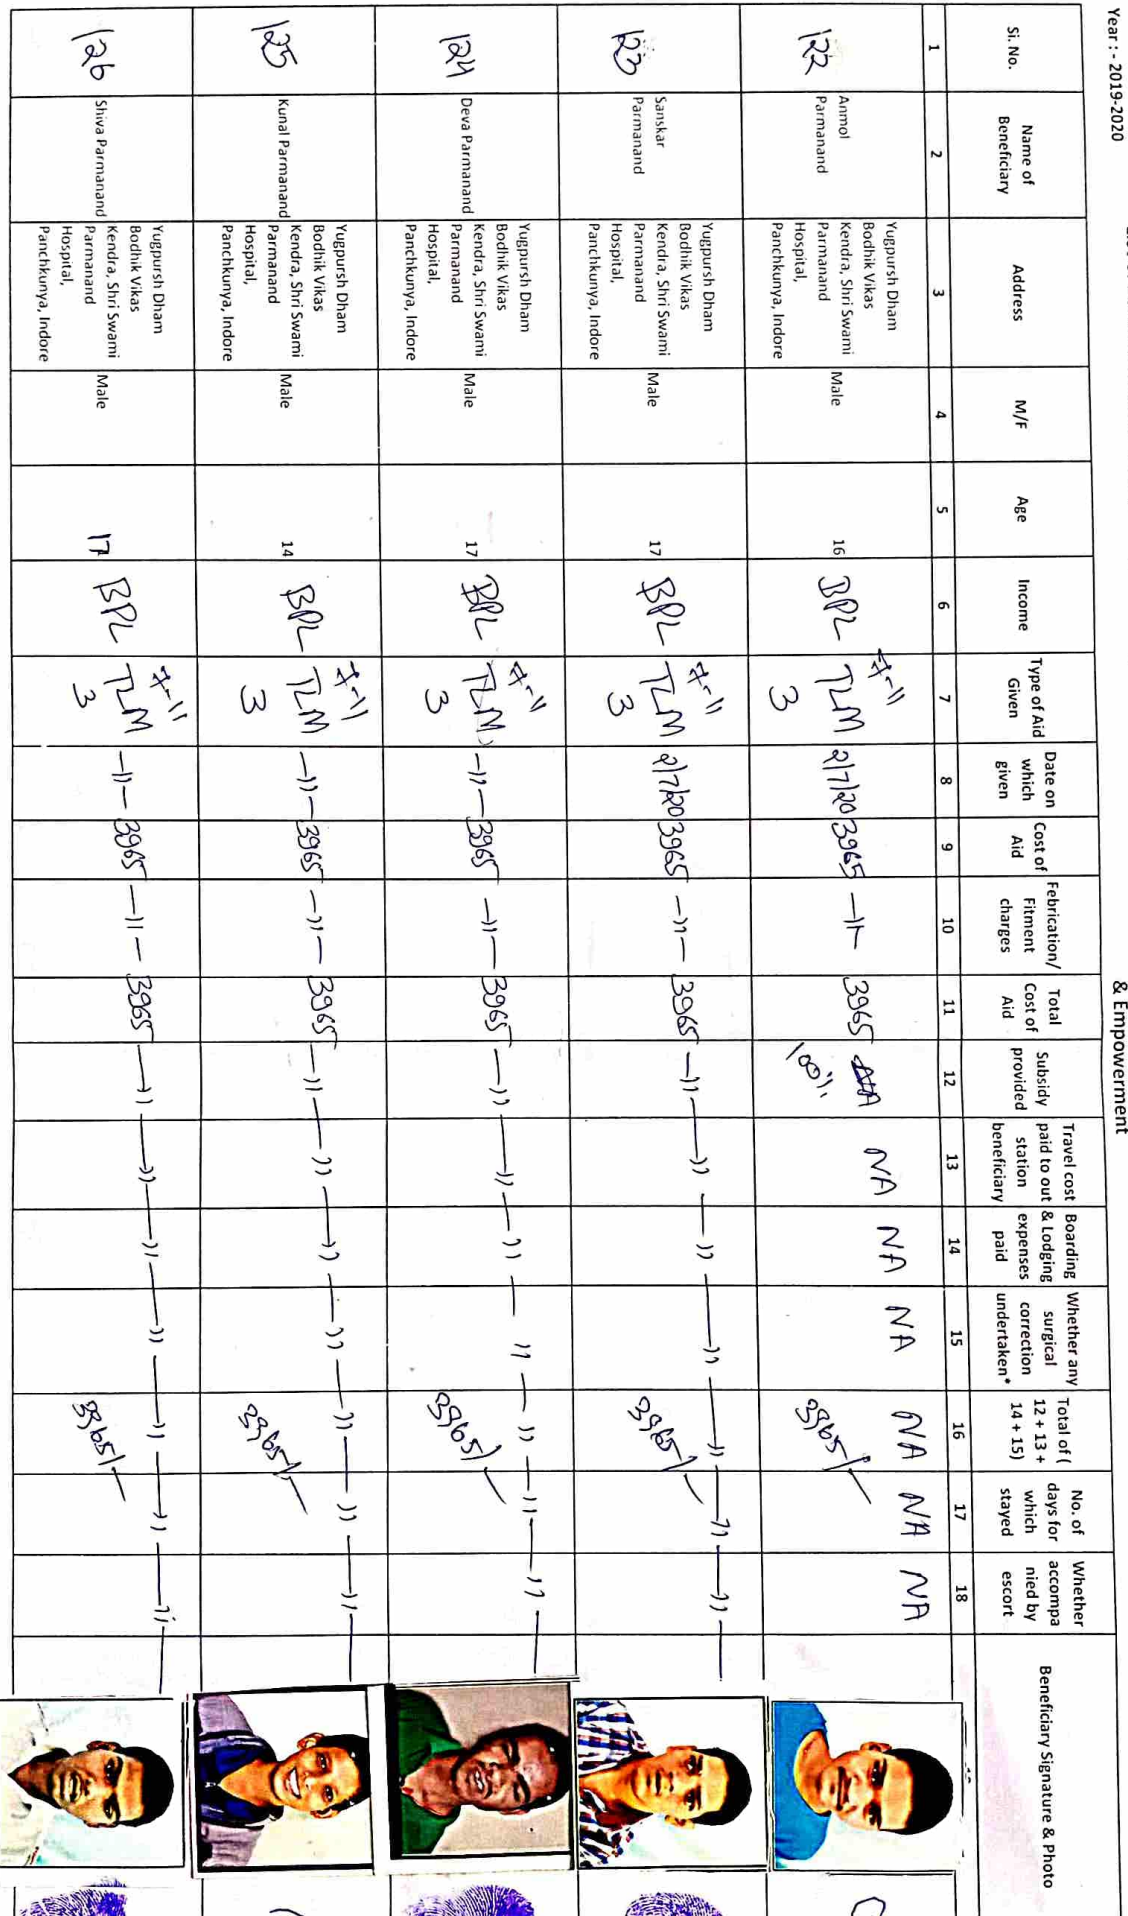 Year : - 2019-2020
& Empowerment
Si. No.
Name of
Beneficiary
Address
M/F
Age
Income
Type of Aid
Given
Date on
which
given
Cost of
Aid
Febrication/
Fitment
charges
Total
Cost of
Aid
Subsidy
provided
Travel cost
paid to out
station
beneficiary
Boarding
& Lodging
expenses
paid
Whether any
surgical
correction
undertaken*
Total of (
12 + 13 +
14 + 15)
No. of
days for
which
stayed
Whether
accompa
nied by
escort
Beneficiary Signature & Photo
1 2 3 4 5 6 7 8 9 10 11 12 13 14 15 16 17 18
122
Anmol
Parmanand
Yugpursh Dham
Bodhik Vikas
Kendra, Shri Swami
Parmanand
Hospital,
Panchkunya, Indore
Male
16
BPL
7-11
TLM
3
2/7/20
3965
-11-
3965
100%
NA
NA
NA
NA
3965/-
NA
NA
123
Sanskar
Parmanand
Yugpursh Dham
Bodhik Vikas
Kendra, Shri Swami
Parmanand
Hospital,
Panchkunya, Indore
Male
17
BPL
7-11
TLM
3
2/7/20
3965
-11-
3965
-11- -11- -11- -11- -11-
3965/-
-11- -11-
124
Deva Parmanand
Yugpursh Dham
Bodhik Vikas
Kendra, Shri Swami
Parmanand
Hospital,
Panchkunya, Indore
Male
17
BPL
7-11
TLM
3
-11-
3965
-11-
3965
-11- -11- -11- -11- -11-
3965/-
-11- -11-
125
Kunal Parmanand
Yugpursh Dham
Bodhik Vikas
Kendra, Shri Swami
Parmanand
Hospital,
Panchkunya, Indore
Male
14
BPL
7-11
TLM
3
-11-
3965
-11-
3965
-11- -11- -11- -11- -11-
3965/-
-11- -11-
126
Shiva Parmanand
Yugpursh Dham
Bodhik Vikas
Kendra, Shri Swami
Parmanand
Hospital,
Panchkunya, Indore
Male
17
BPL
7-11
TLM
3
-11-
3965
-11-
3965
-11- -11- -11- -11- -11-
3965/-
-11- -11-